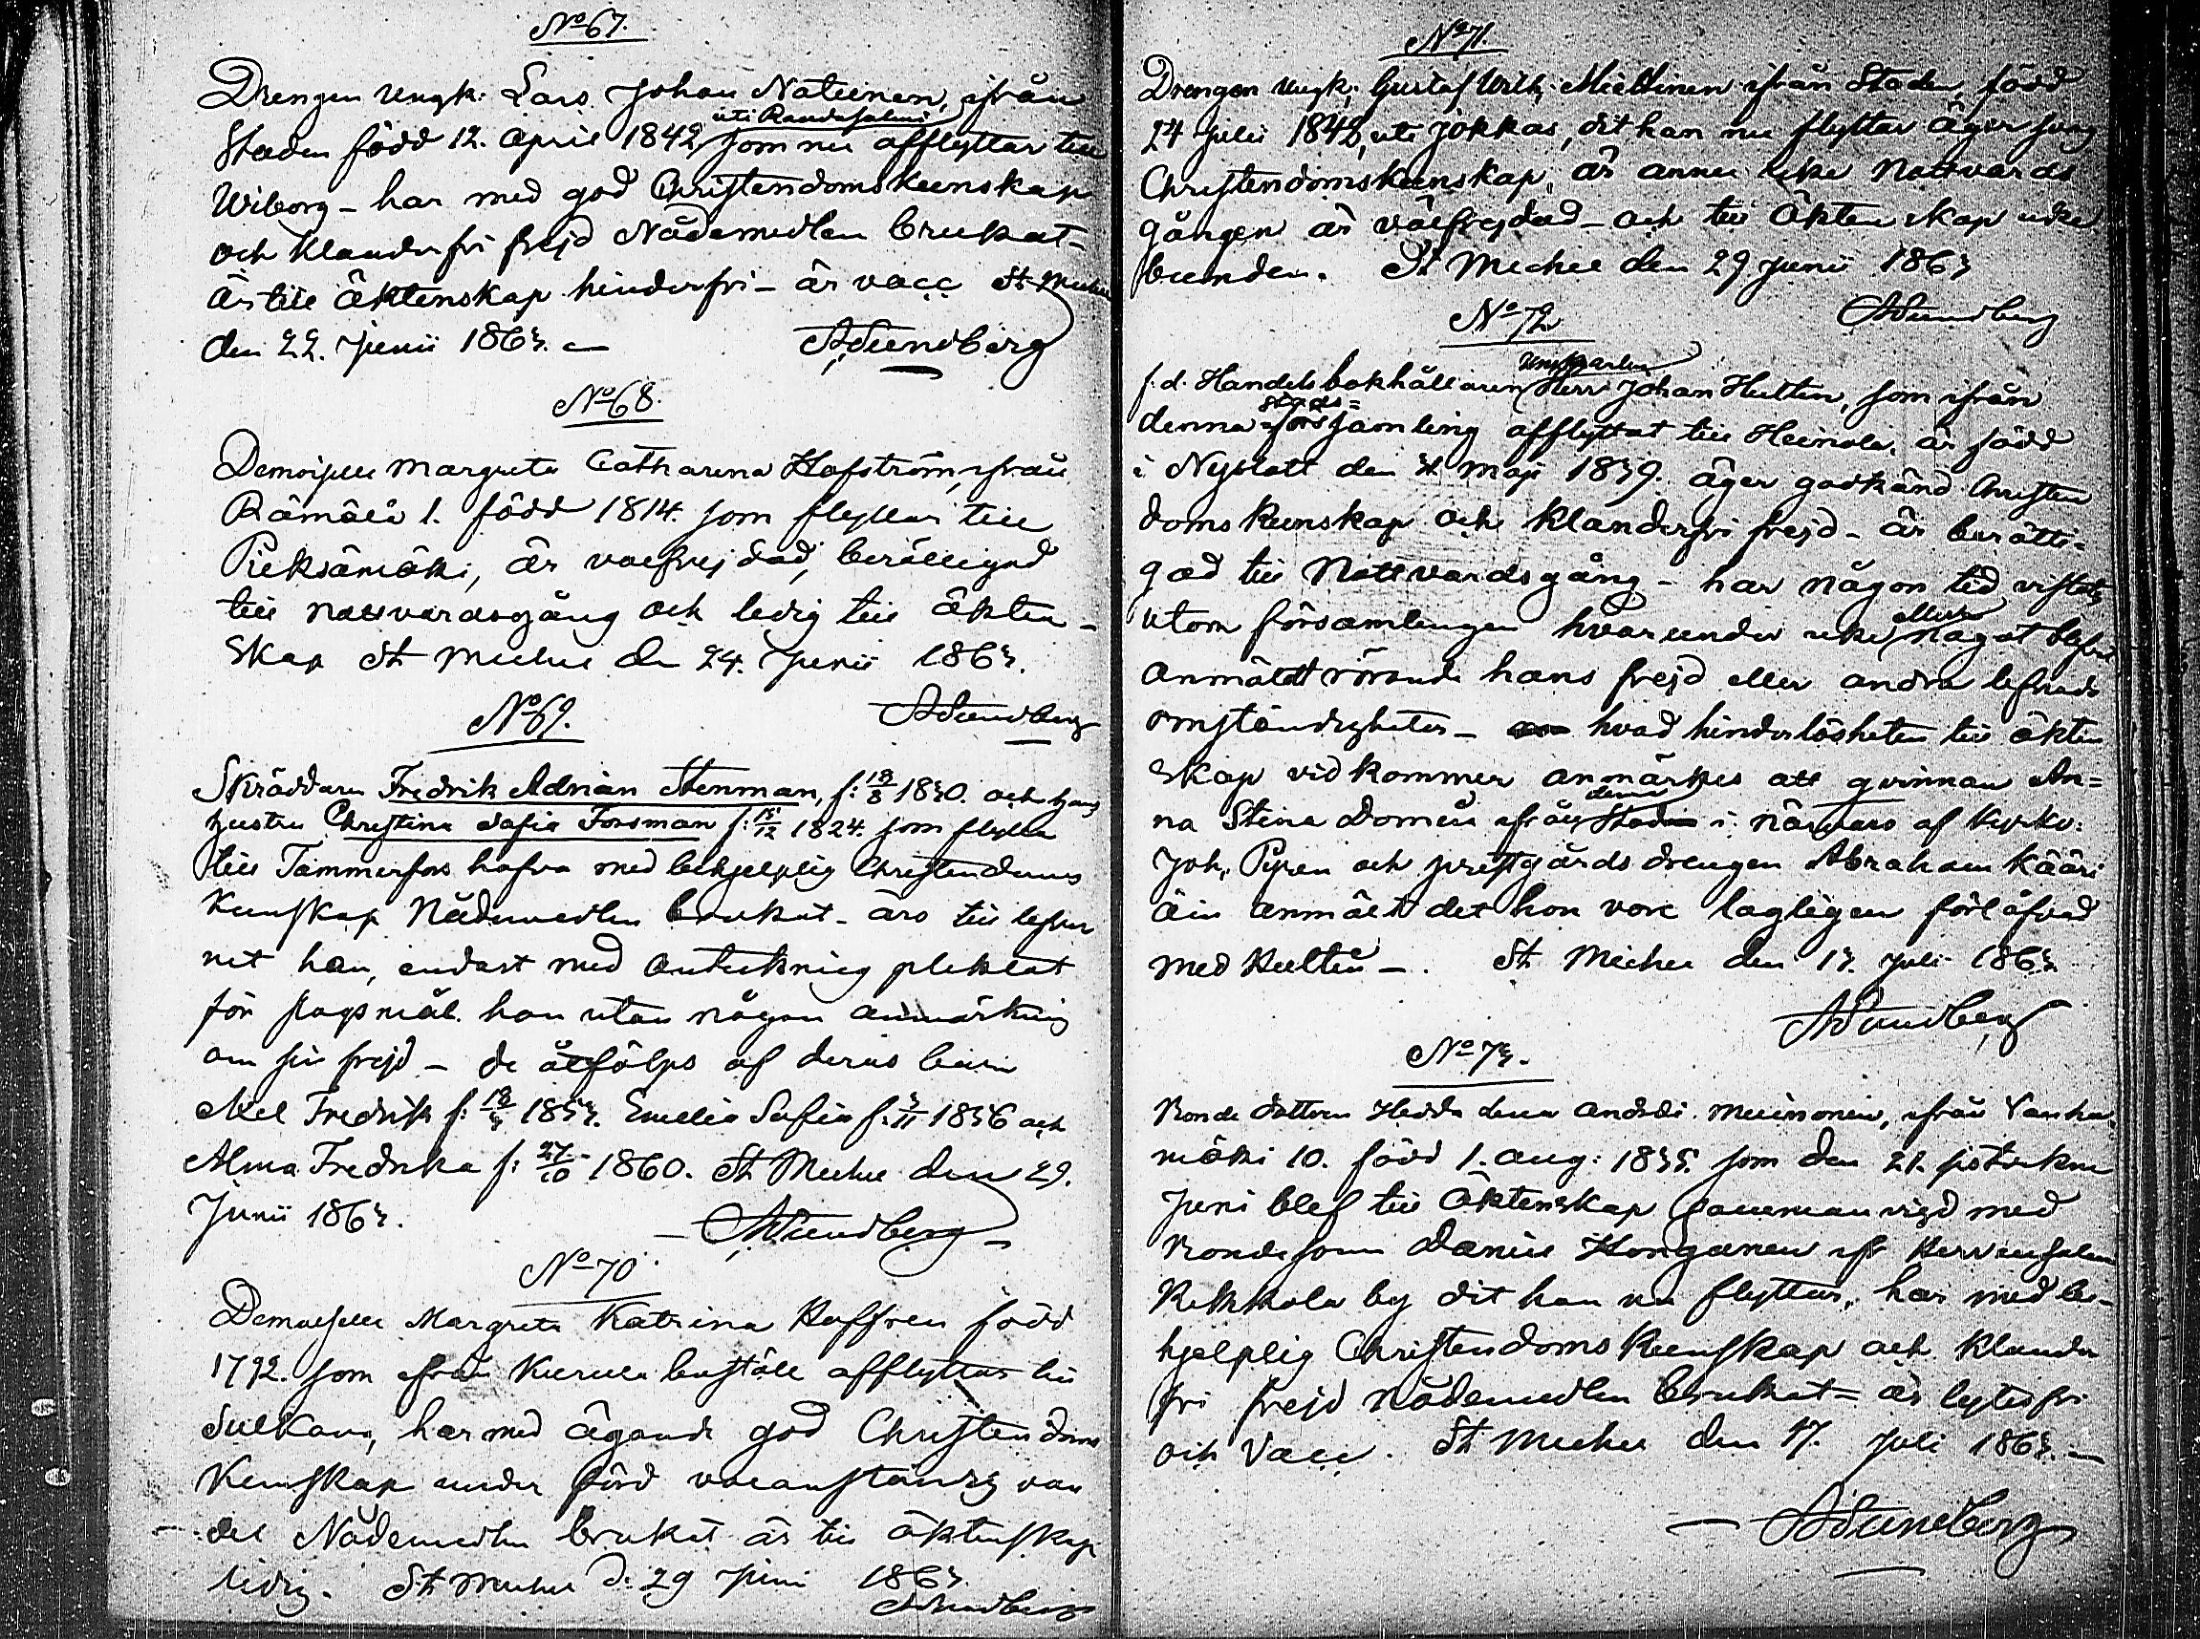 No 67.
Drengen Ungk: Lars Johan Natunen, ifrån
uti Randasalmi
Staden född 12. April 1842, som nu afflyttar till
Wiborg – har med god Christendomskunskap
och klanderfri frejd Nådemedlen brukat –
är till äktenskap hinderfri – är vacc St Michel
den 22. Junii 1863. –
ASundberg
No 68.
Demoiselle Margreta Catharina Hofström, ifrån
Rämälä 1. född 1814. som flyttar till
Pieksämäki, är välfrejdad, berättigad
till nattvardsgång och ledig till äkten-
skap St Michel den 24. Junii 1863.
ASundberg
No 69.
Skräddaren Fredrik Adrian Stenman, f: 18/8 1830. och hans
hustru Christina Sofia Forsman f: 15/12 1824. som flytta
till Tammerfors hafva med behjelplig Christendoms
kunskap Nådemedlen brukat – äro till lefver
net han, endast med anteckning pliktat
för slagsmål. hon utan någon anmärkning
om sin frejd – de åtföljas af deras barn
Axel Fredrik f: 18/3 1853. Emelia Sofia f: 3/11 1856 och
Alma Fredrika f: 27/10 1860. St Michel den 29.
Junii 1863.
ASundberg
No 70.
Demoiselle Margreta Katrina Hoffren född
1792. som ifrån boställ afflyttar till
Sulkava, har med ägande god Christendoms
kunskap under förd välanständig van
del Nådemedlen brukat är till äktenskap
ledig. St Michel d: 29 Juni 1863.
ASundberg
No 71.
Drengen Ungk: Gustaf Wilh: Miettinen ifrån Staden, född
24 Julii 1848, uti Jokkas, dit han nu flyttar äger svag
Christendomskunskap, är ännu icke Nattvards
gången är välfrejdad – och till Äktenskap icke
bunden. St Michel den 29 Junii 1863
ASundberg
No 72
Ungkarlen
f.d. Handelsbokhållaren Herr Johan Hulten, som ifrån
stads=
denna församling afflyttat till Heinola, är född
i Nyslott den 4. Maji 1839. äger godkänd Christen
domskunskap och klanderfri frejd – är berätti-
gad till Nattvardsgång – har någon tid vistats
utom församlingen hvarunder icke något blifvit
anmäldt rörande hans frejd eller andra lefnads
omständigheter – hvad hinderlösheten till äkten
skap vidkommer anmärkes att qvinnan An=
denna
na Stina Domén ifrån Staden i närvaro af kyrkv:
Joh: Pyren och prestgårds drengen Abraham Kääri
äin anmält det hon vore lagligen förlåfvad
med Hultén –. St Michel den 13. Juli 1863.
ASundberg
No 73.
Bonde dottren Hedda Lena Andsdr. Muinonen, ifrån Vanha
mäki 10. född 1. Aug: 1835. som den 21. sistvekne
Juni blef till Äktenskap samman vigd med
Bondesonen Daniel Honganen ifr Hirvensalmi
by dit hon nu flyttar, har med be-
hjelplig Christendomskunskap och klander
fri frejd Nådemedlen brukat = är lytesfri
och Vacc. St Michel den 17. Juli 1863. –
ASundberg